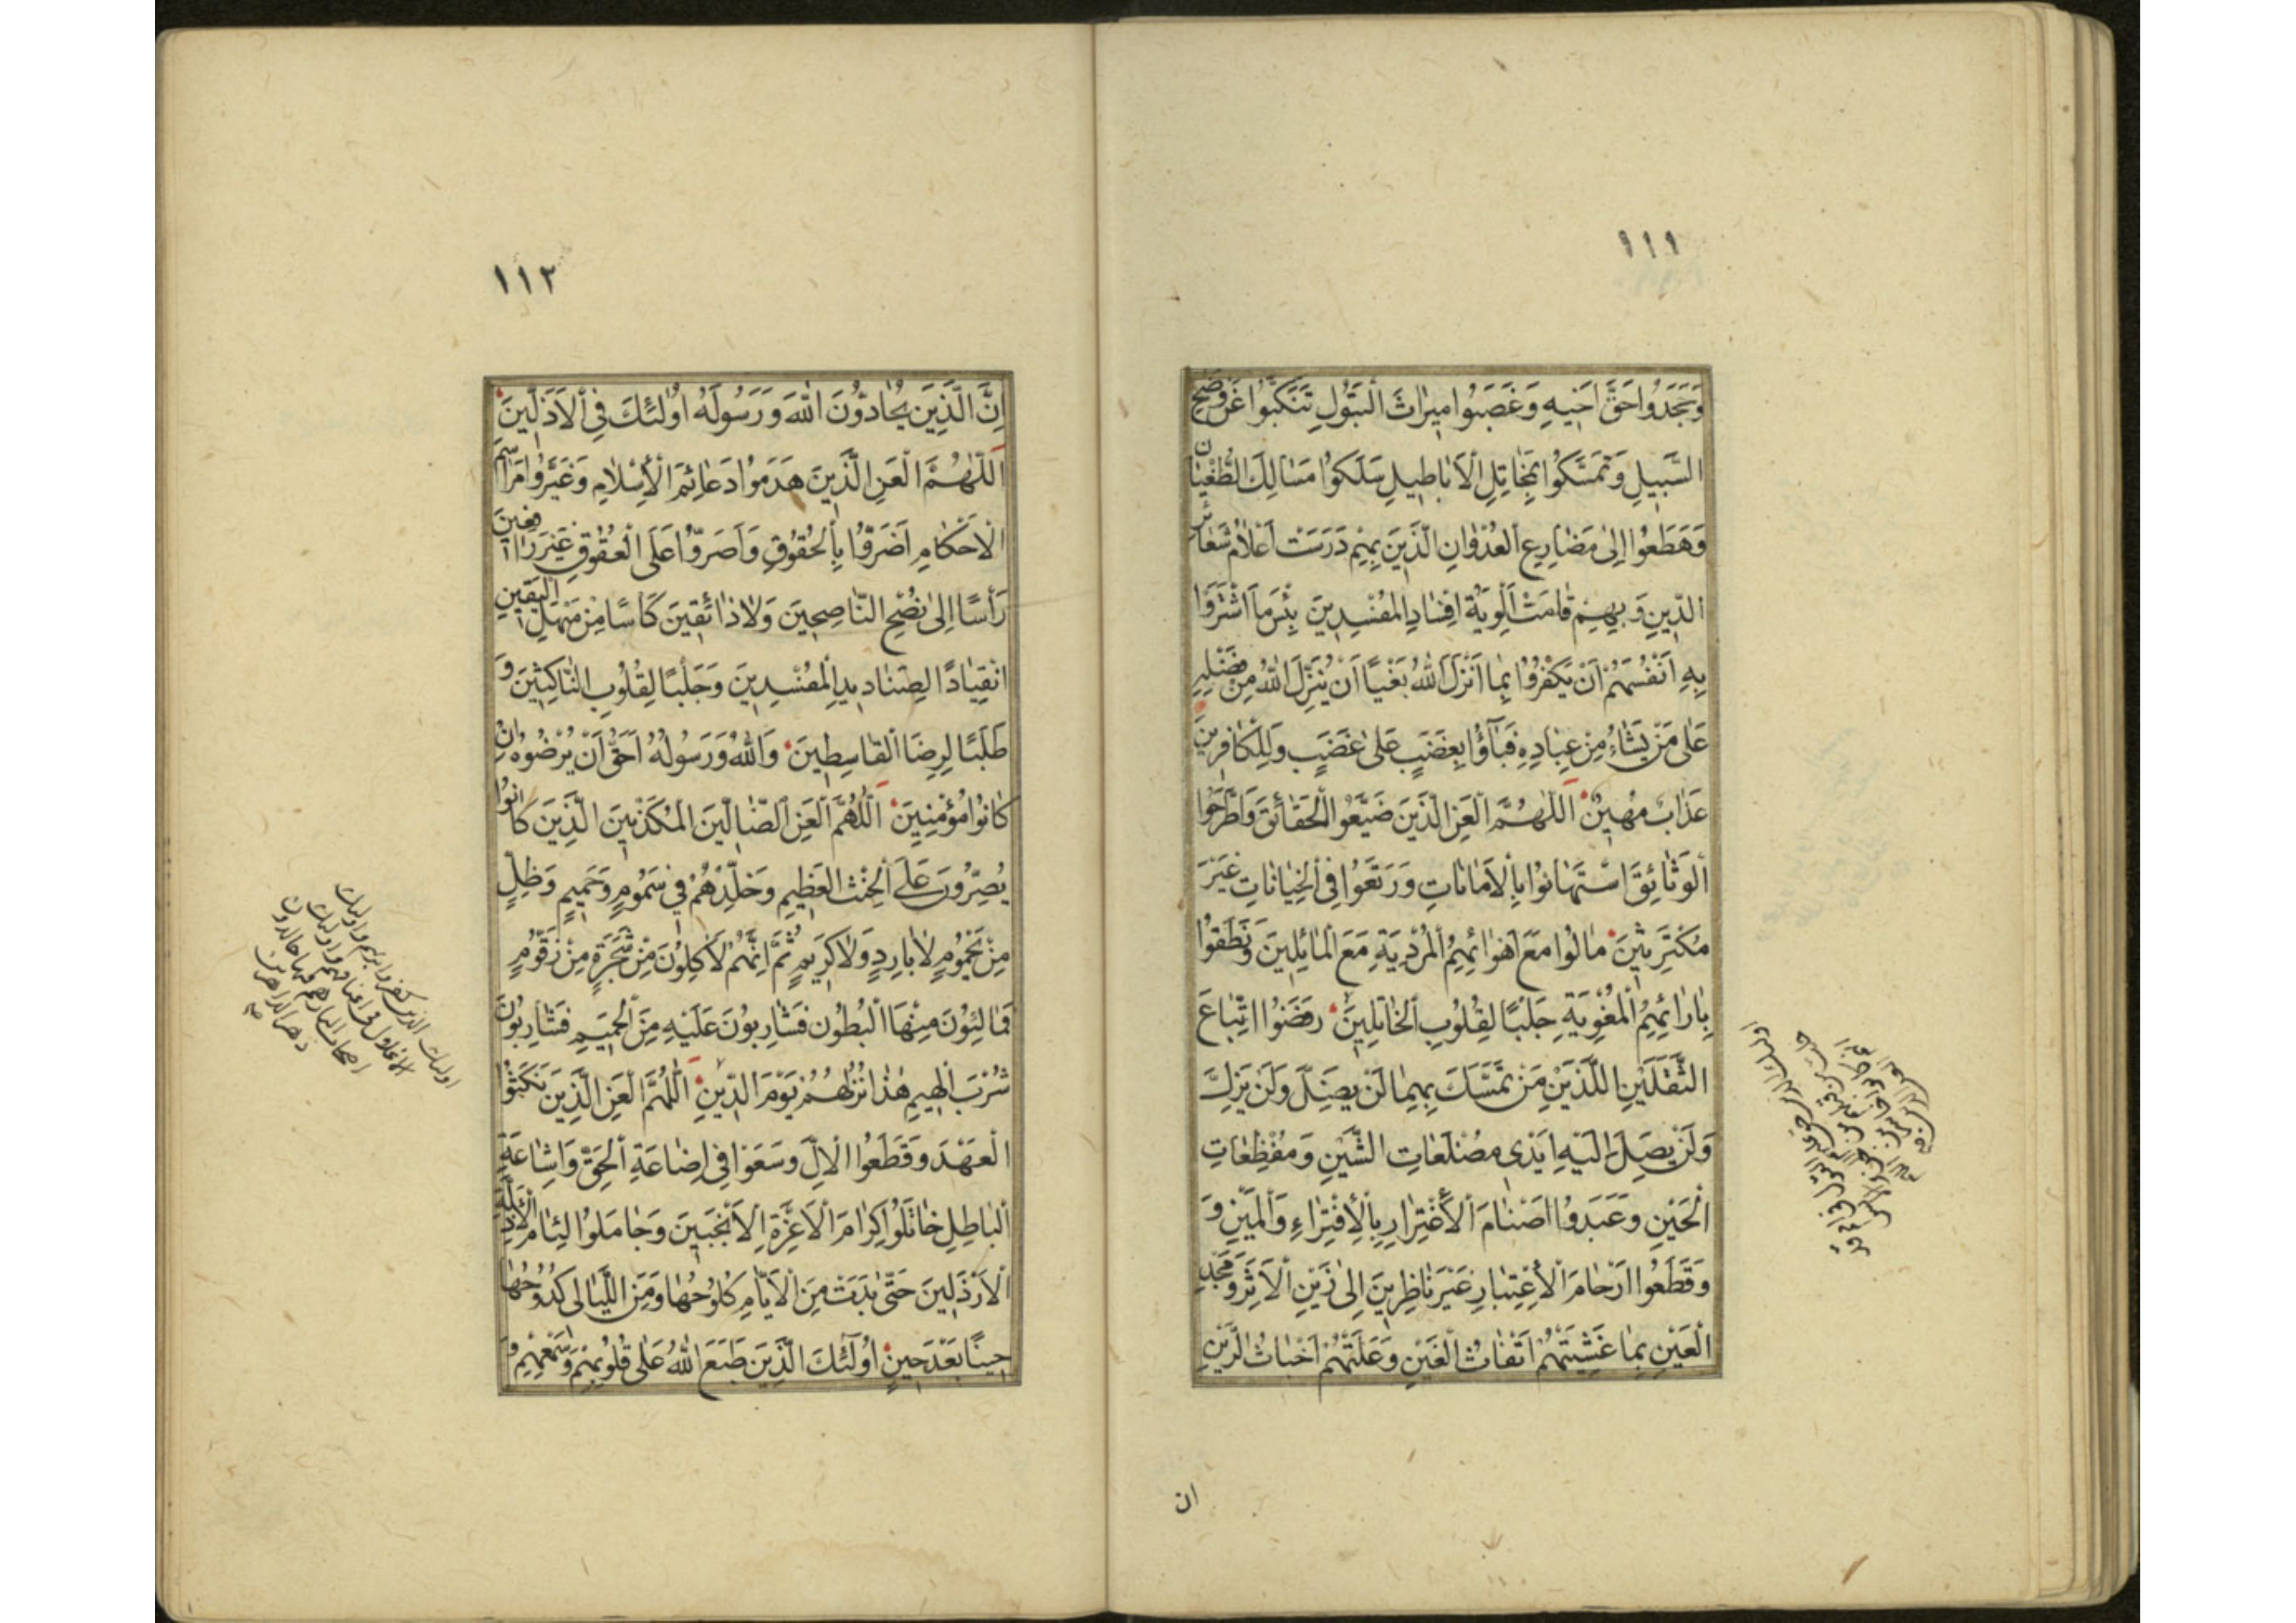 ١١١
وَجَحَدُوا حَقَّ اَخيهِ وَغَصَبُوا ميرٰاثَ الْبَتُولِ تَنَكَّبُوا عَنْ وَضَحِ
السَّبيلِ وَتَمَسَّكُوا بِمَخٰاتِلِ الْاَبٰاطيلِ سَلَكُوا مَسٰالِكَ الطُّغْيٰانِ
وَهَطَعُوا اِلىٰ مَصٰارِعِ الْعُدْوٰانِ الَّذينَ بِهِمْ دَرَسَتْ اَعْلٰامُ شَعٰائِرِ
الدّينِ وَبِهِمْ قٰامَتْ اَلْوِيَةُ اِفْسٰادِ الْمُفْسِدينَ بِئْسَ مَا اشْتَرَوْا
بِهِ اَنْفُسَهُمْ اَنْ يَكْفُرُوا بِمٰا اَنْزَلَ اللّٰهُ بَغْيًا اَنْ يُنَزِّلَ اللّٰهُ مِنْ فَضْلِهِ
عَلىٰ مَنْ يَشٰاءُ مِنْ عِبٰادِهِ فَبٰاؤُا بِغَضَبٍ عَلىٰ غَضَبٍ وَلِلْكٰافِرينَ
عَذٰابٌ مُهينٌ اَللّٰهُمَّ الْعَنِ الَّذينَ ضَيَّعُوا الْحَقٰائِقَ وَاطَّرَحُوا
الْوَثٰائِقَ اسْتَهٰانُوا بِالْاَمٰانٰاتِ وَرَتَعُوا فِى الْخِيٰانٰاتِ غَيْرَ
مُكْتَرِثينَ مٰالُوا مَعَ اَهْوٰائِهِمُ الْمُرْدِيَةِ مَعَ الْمٰائِلينَ وَنَطَقُوا
بِاٰرٰائِهِمُ الْمُغْوِيَةِ جَلْبًا لِقُلُوبِ الْخٰاتِلينَ رَفَضُوا اتِّبٰاعَ
الثَّقَلَيْنِ اللَّذَيْنِ مَنْ تَمَسَّكَ بِهِمٰا لَنْ يَضِلَّ وَلَنْ يَزِلَّ
وَلَنْ يَصِلَ اِلَيْهِ اَيْدى مُضْلَعٰاتِ الشَّيْنِ وَمُفْظِعٰاتِ
الْحَيْنِ وَعَبَدُوا اَصْنٰامَ الْاغْتِرٰارِ بِالْاِفْتِرٰاءِ وَالْمَيْنِ وَ
وَقَطَعُوا اَرْحٰامَ الْاِعْتِبٰارِ غَيْرَ نٰاظِرينَ اِلىٰ زَيْنِ الْاَثَرِ وَمَجْدِ
الْعَيْنِ بِمٰا غَشِيَتْهُمْ اَتْفٰاثُ الْغَيْنِ وَعَلَتْهُمْ اَخْبٰاثُ الرَّيْنِ
ان
١١٢
اِنَّ الَّذينَ يُحٰادُّونَ اللّٰهَ وَرَسُولَهُ اُولٰئِكَ فِى الْاَذَلّينَ
اَللّٰهُمَّ الْعَنِ الَّذينَ هَدَمُوا دَعٰائِمَ الْاِسْلٰامِ وَغَيَّرُوا مَرٰاسِمَ
الْاَحْكٰامِ اَضَرُّوا بِالْحُقُوقِ وَاَصَرُّوا عَلَى الْعُقُوقِ غَيْرَ رٰافِعينَ
رَأْسًا اِلىٰ نُصْحِ النّٰاصِحينَ وَلٰا ذٰائِقينَ كَأْسًا مِنْ مَنْهَلِ الْيَقينِ
انْقِيٰادًا لِصَنٰاديدِ الْمُفْسِدينَ وَجَلْبًا لِقُلُوبِ النّٰاكِثينَ وَ
طَلَبًا لِرِضَا الْقٰاسِطينَ وَاللّٰهُ وَرَسُولُهُ اَحَقُّ اَنْ يُرْضُوهُ اِنْ
كٰانُوا مُؤْمِنينَ اَللّٰهُمَّ الْعَنِ الضّٰالّينَ الْمُكَذِّبينَ الَّذينَ كٰانُوا
يُصِرُّونَ عَلَى الْحِنْثِ الْعَظيمِ وَخَلِّدْهُمْ فى سَمُومٍ وَحَميمٍ وَظِلٍّ
مِنْ يَحْمُومٍ لٰا بٰارِدٍ وَلٰا كَريمٍ ثُمَّ اِنَّهُمْ لَاٰكِلُونَ مِنْ شَجَرَةٍ مِنْ زَقُّومٍ
فَمٰالِئُونَ مِنْهَا الْبُطُونَ فَشٰارِبُونَ عَلَيْهِ مِنَ الْحَميمِ فَشٰارِبُونَ
شُرْبَ الْهيمِ هٰذٰا نُزُلُهُمْ يَوْمَ الدّينِ اَللّٰهُمَّ الْعَنِ الَّذينَ نَكَثُوا
الْعَهْدَ وَقَطَعُوا الْاِلَّ وَسَعَوْا فى اِضٰاعَةِ الْحَقِّ وَاِشٰاعَةِ
الْبٰاطِلِ خٰاتَلُوا كِرٰامَ الْاَعِزَّةِ الْاَنْجَبينَ وَجٰامَلُوا لِئٰامَ الْاَذِلَّةِ
الْاَرْذَلينَ حَتّىٰ بَدَتْ مِنَ الْاَيّٰامِ كُلُوحُهٰا وَمِنَ اللَّيٰالى كُدُوحُهٰا
حينًا بَعْدَ حينٍ اُولٰئِكَ الَّذينَ طَبَعَ اللّٰهُ عَلىٰ قُلُوبِهِمْ وَسَمْعِهِمْ وَ
اولئك الذين كفروا بربهم واولئك
الاغلال فى اعناقهم واولئك
اصحاب النار هم فيها خالدون
دهر الداهرين